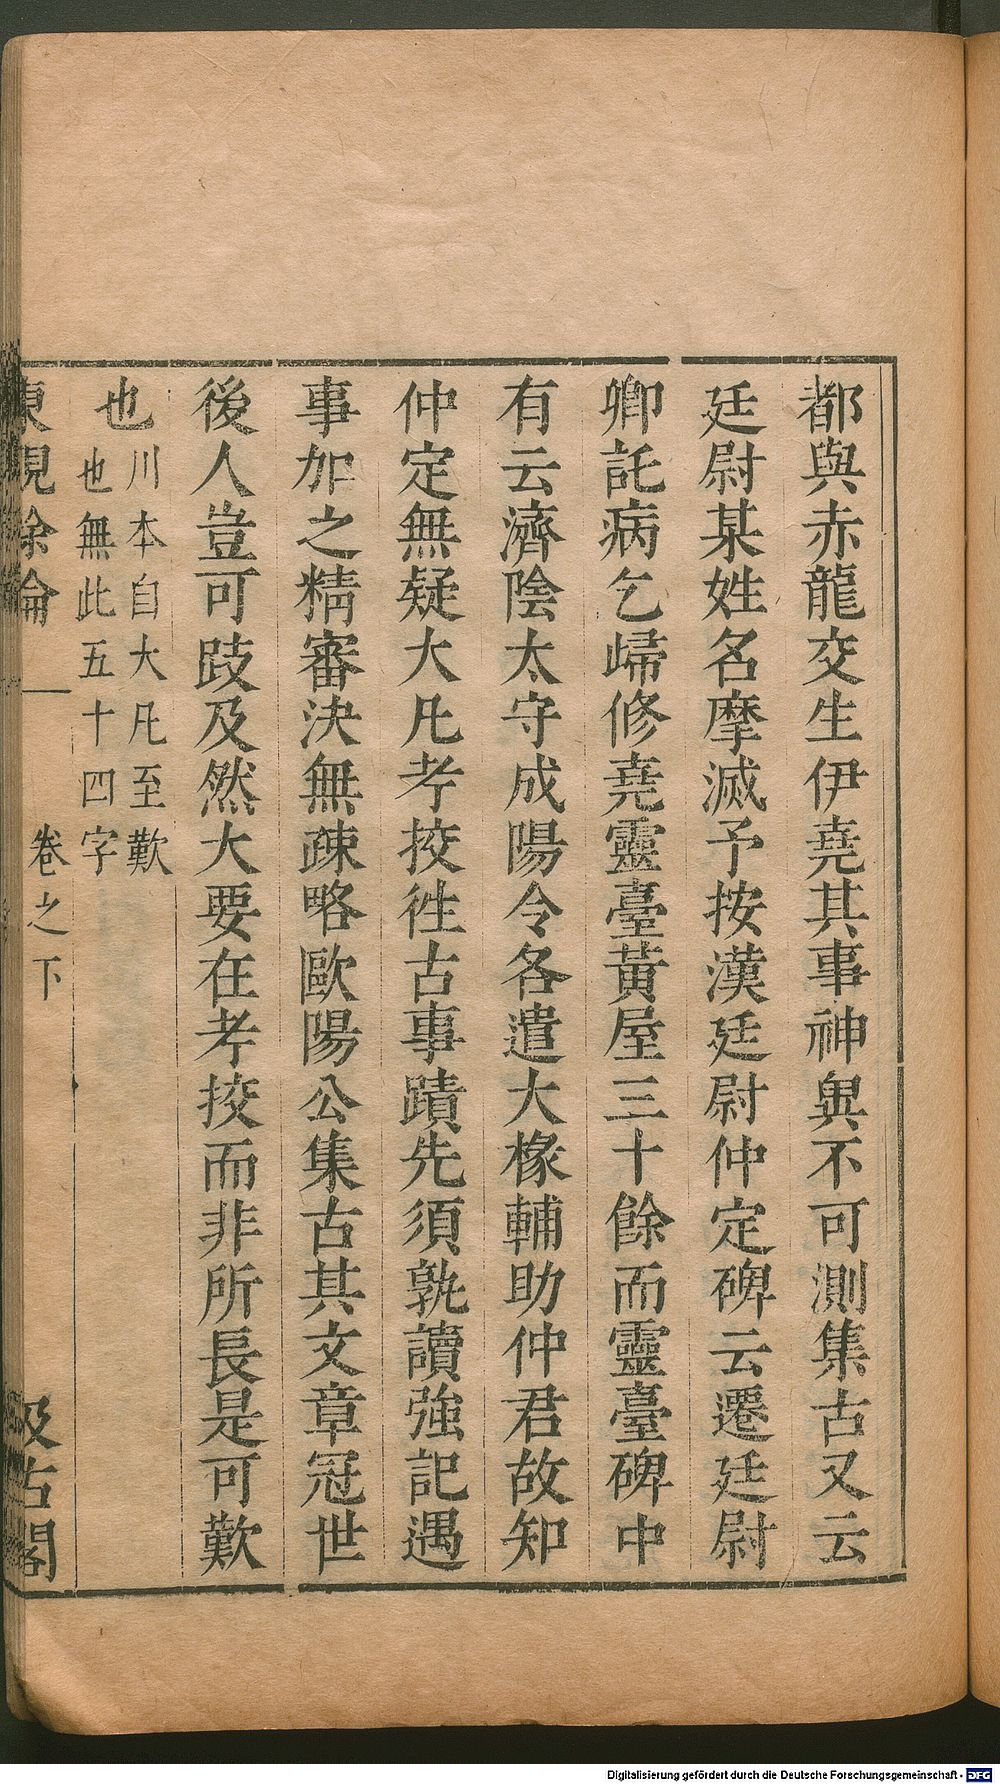 都與赤龍交生伊堯其事神異不可測集古又云
廷尉某姓名摩滅予按漢廷尉仲定碑云遷廷尉
卿託病乞歸修堯靈臺黃屋三十餘而靈臺碑中
有云濟陰太守成陽令各遣大椽輔助仲君故知
仲定無疑大凡考挍徃古事蹟先須孰讀強記遇
事加之精審決無疎略歐陽公集古其文章冠世
後人豈可跂及然大要在考挍而非所長是可歎
也川本自大凡至歎
也無此五十四字
東觀餘論 卷之下 汲古閣
Digitalisierung gefördert durch die Deutsche Forschungsgemeinschaft - DFG